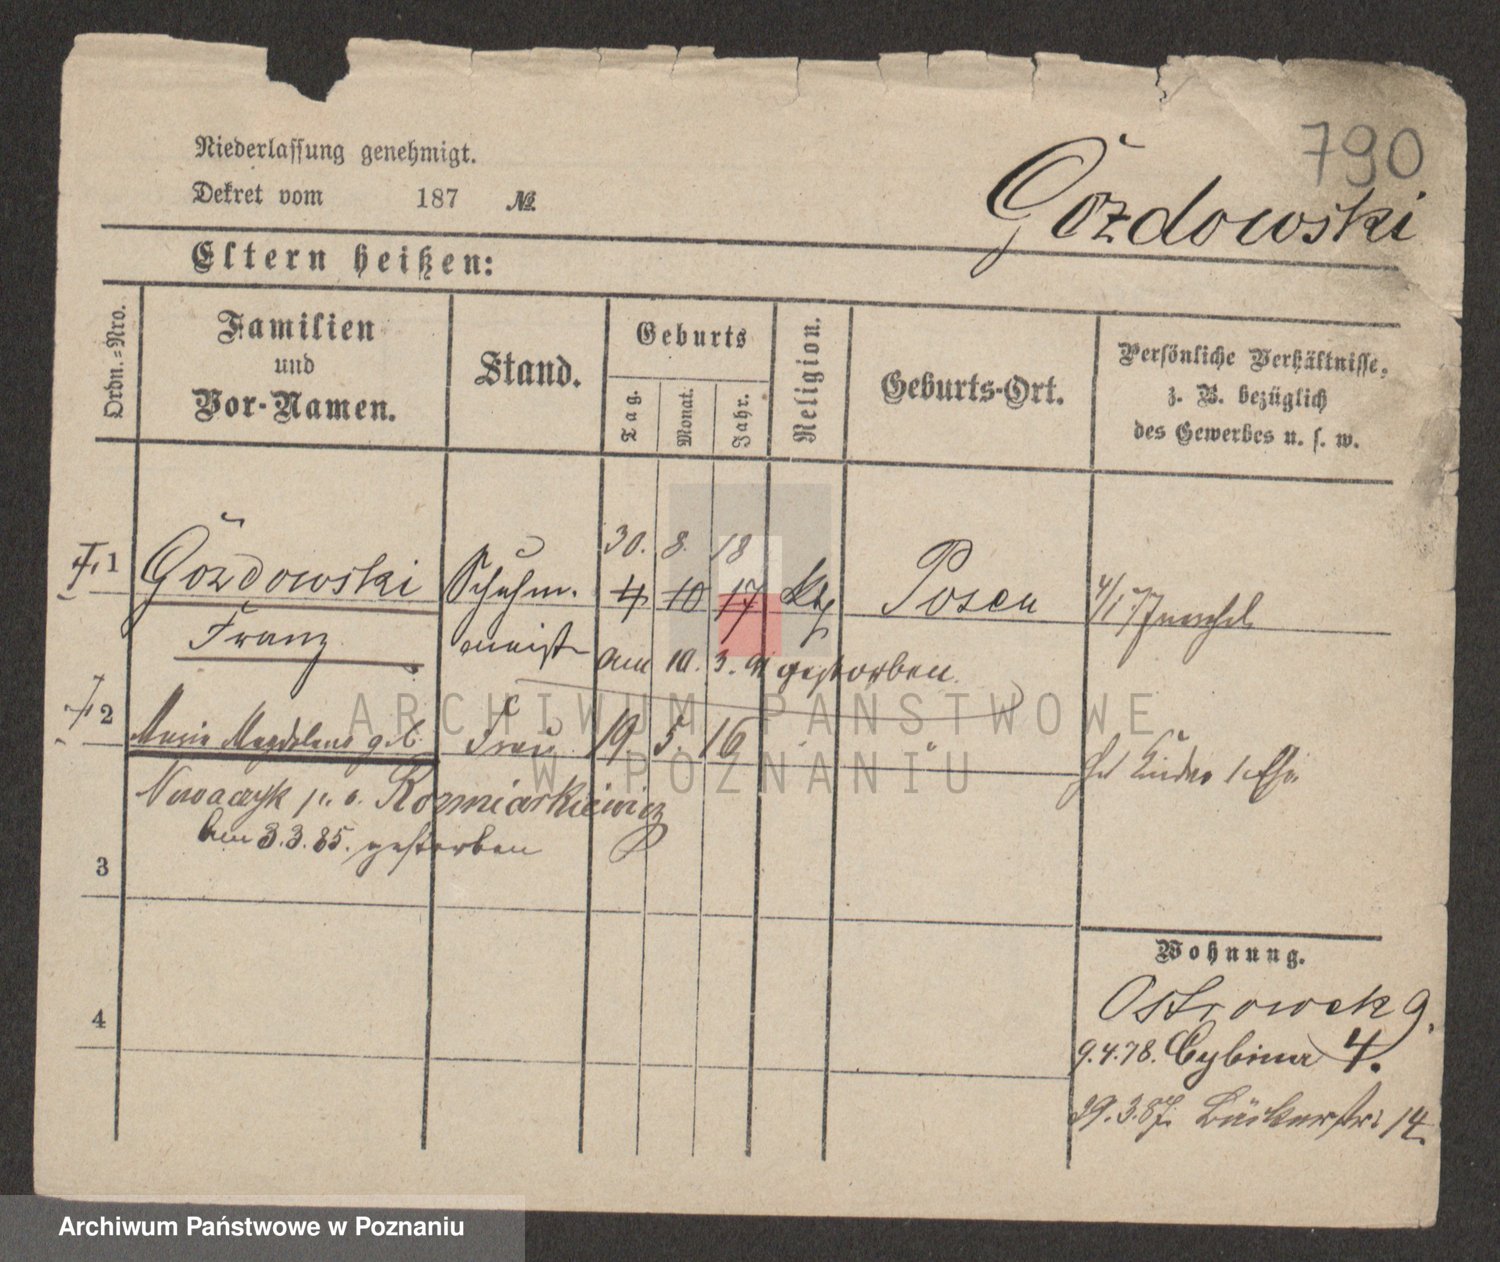 790
Niederlassung genehmigt.
Dekret vom 187 №
Gozdowski
Eltern heißen:
Ordn.=Nro.
Familien
und
Vor-Namen.
Stand.
Geburts
Tag.
Monat.
Jahr.
Religion.
Geburts-Ort.
Persönliche Verhältnisse,
z. B. bezüglich
des Gewerbes u. s. w.
30. 8. 18
1 Gozdowski Schuhm. 4 10 17 kth Posen 4/1 77
Franz meist
am 10. 3. 91 gestorben.
2 Marie Magdalena geb. Frau 19. 5. 16 " "
Nowaczyk Rozmiarkiewicz
am 3.3.85. gestorben
3
4
Wohnung.
Ostrowek 9.
9.4.78. Cybina 4.
29.3.87. Bäckerstr. 14.
ARCHIWUM PAŃSTWOWE
W POZNANIU
Archiwum Państwowe w Poznaniu